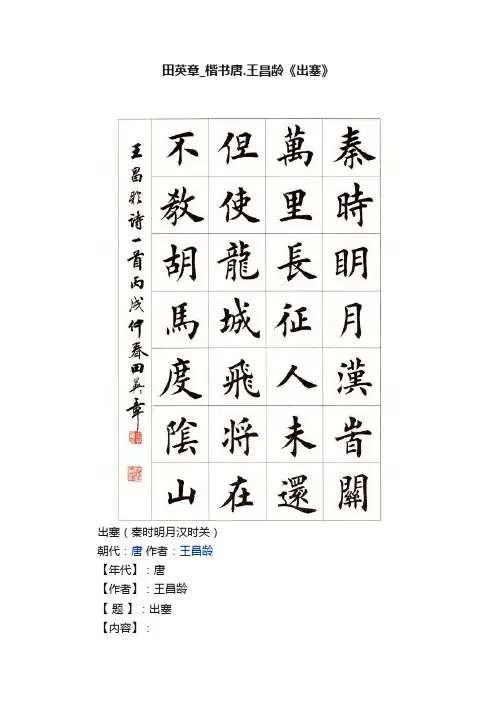 田英章_楷书唐.王昌龄《出塞》
秦時明月漢旹關
萬里長征人未還
但使龍城飛将在
不教胡馬度陰山
王昌龄诗一首丙戌仲春田英章
出塞（秦时明月汉时关）
朝代：唐 作者：王昌龄
【年代】：唐
【作者】：王昌龄
【 题 】：出塞
【内容】：